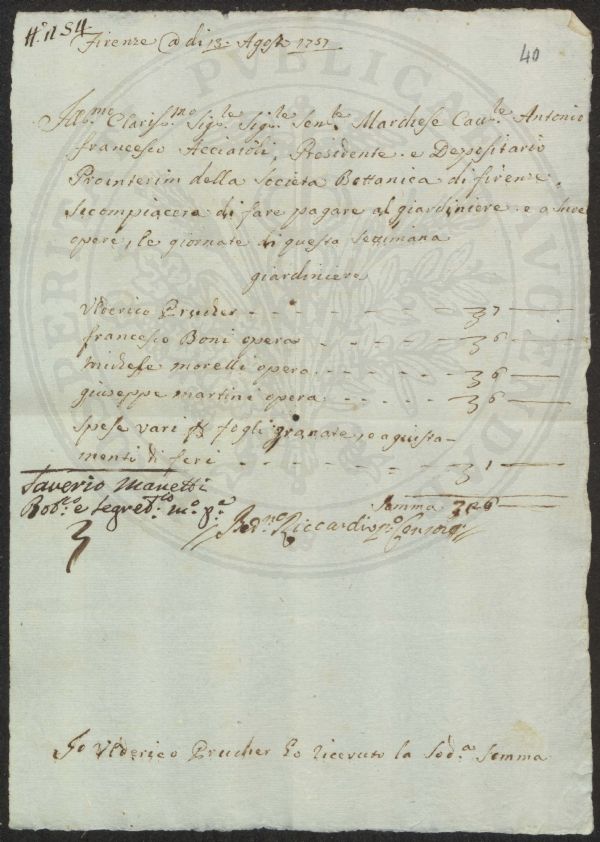 N.o 154
40
Firenze @ di 13 Agosto 1757
Ill.mo Clariss.mo Sig.re Sig.re Sen.re Marchese Cav.re Antonio
francesco Acciaioli, Presidente e Depositario
Prointerim della Societa Bottanica di firenze,
si compiacerà di fare pagare al giardiniere e a sure
opere, le giornate di questa Settimana
giardiniere
Vlderico Prucher 37
francesco Boni opera 36
michele morelli opera 36
giuseppe martini opera 36
spese vari fogli granate, e agiusta-
menti di feri 31
Saverio Manetti
Bot.co e Segret.o m.o p.a
Somma 326
Bed.no Riccardi
Io Vlderico Prucher ho ricevuto la Sod.a Somma
PUBLICA